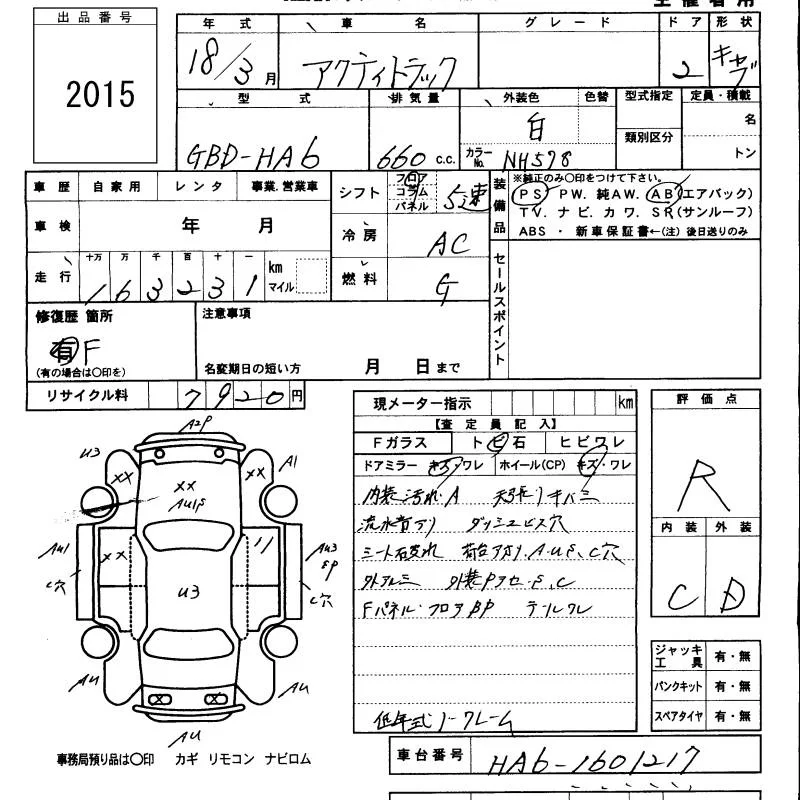 出品番号
2015
年式 車名 グレード ドア 形状
18/3月 アクティトラック 2 キャブ
型式 排気量 外装色 色替 型式指定 定員・積載
類別区分 名
GBD-HA6 660 c.c. 白 カラーNo. NH578 トン
車歴 自家用 レンタ 事業.営業車
車検 年 月
走行 十万 万 千 百 十 一
1 6 3 2 3 1 km マイル
シフト フロア コラム パネル 5速
冷房 AC
燃料 G
装備品
※純正のみ〇印をつけて下さい。
PS PW. 純AW. AB(エアバック)
TV. ナビ. カワ. SR(サンルーフ)
ABS ・ 新車保証書←(注) 後日送りのみ
セールスポイント
修復歴 箇所 注意事項
有 F
(有の場合は〇印を) 名変期日の短い方 月 日まで
リサイクル料 7920円
現メーター指示 km
【査定員記入】
Fガラス トビ石 ヒビワレ
ドアミラー キズ・ワレ ホイール(CP) キズ・ワレ
内装汚れ・A 天張りキバミ
ダッシュビス穴
シート破れ A.U.S.C穴
外アルミ
Fパネル・フロアBP
低年式ノークレーム
評価点
R
内装 外装
C D
ジャッキ工具 有・無
パンクキット 有・無
スペアタイヤ 有・無
A2P
U3 A1
XX XX
AU1S
AU1 XX AU3
SP
C穴 U3 C穴
AU AU
X X
AU
事務局預り品は〇印 カギ リモコン ナビロム
車台番号 HA6-1601217